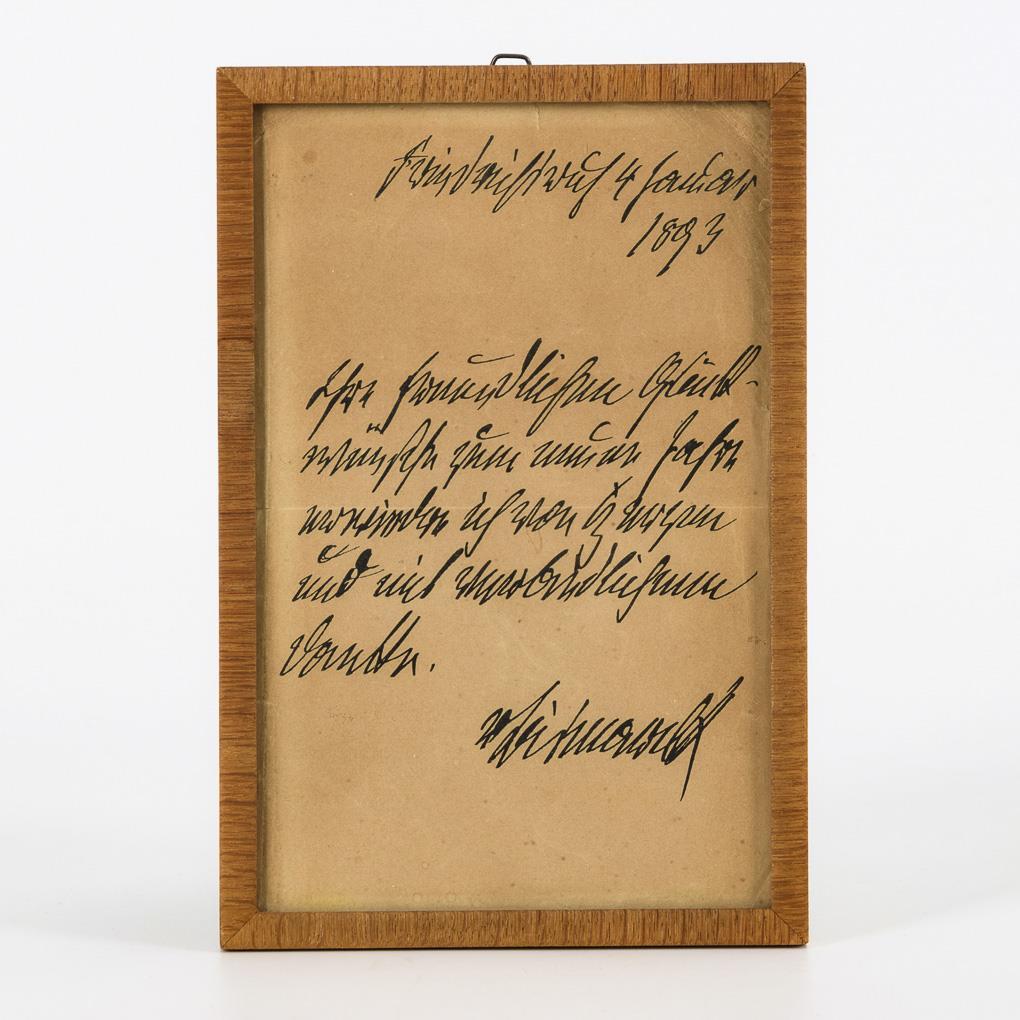 Friedrichsruh 4 Januar
1893
Ihre freundlichen Glück-
wünsche zum neuen Jahre
erwiedre ich von Herzen
und mit verbindlichem
Danke.
v Bismarck